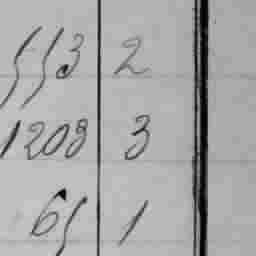 553 2
1208 3
65 1